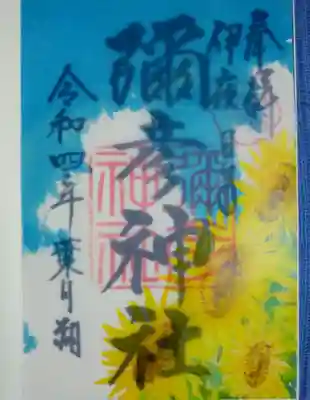 奉拝
伊夜日子
彌彦神社
令和四年 葉月朔